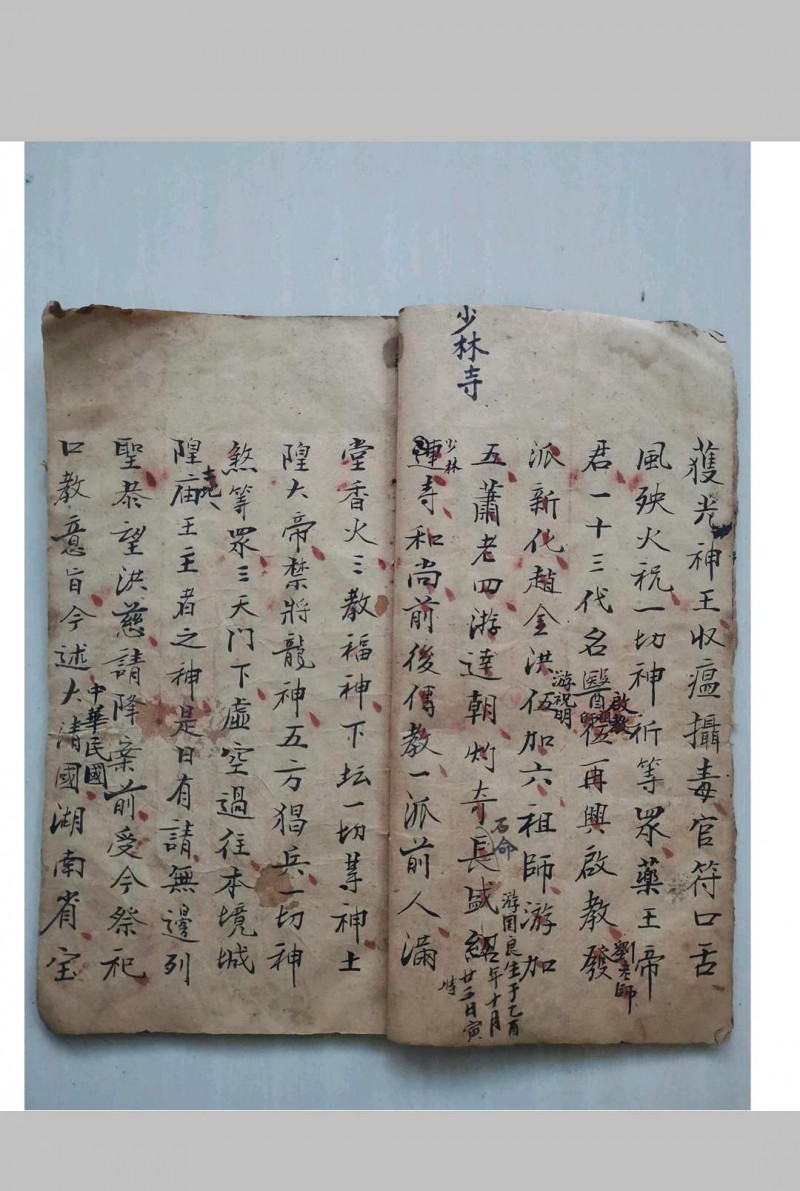 獲光神王收瘟攝毒官符口舌
風殃火祝一切神祈等眾藥王帝
君一十三代名醫師伍再興啟教發
啟教
劉老師
派新化趙金洪伍加六祖師游加
游祝明
少林寺
五蕭老四游達朝灼奇長盛紹
石命
游国良生于乙酉
年十月
廿二日寅
時
蓮寺和尚前後傳教一派前人滿
少林
堂香火三教福神下坛一切等神土
隍大帝禁將龍神五方猖兵一切神
煞等眾三天门下虛空過往本境城
隍庙王王者之神是日有請無邊列
土地
聖恭望洪慈請降案前受今祭祀
口教意旨今述大清國湖南省宝
中華民國